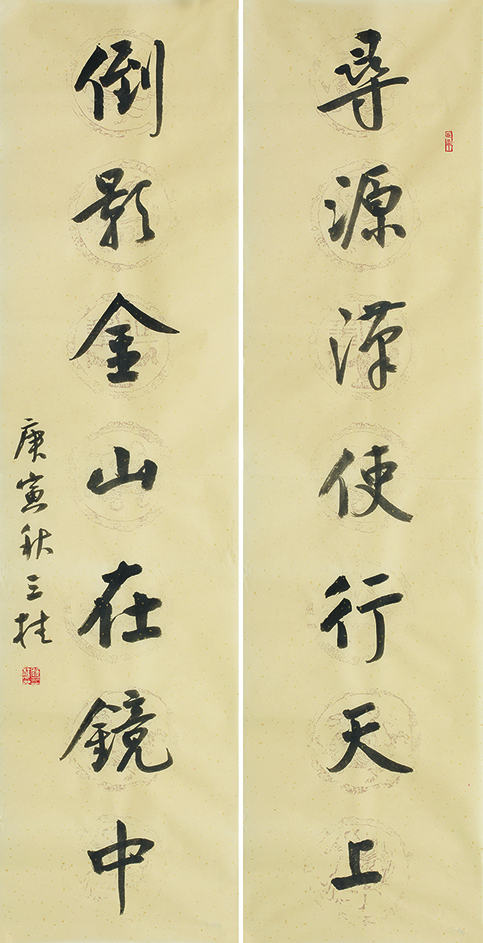 尋源漢使行天上
倒影金山在鏡中
庚寅秋三桂